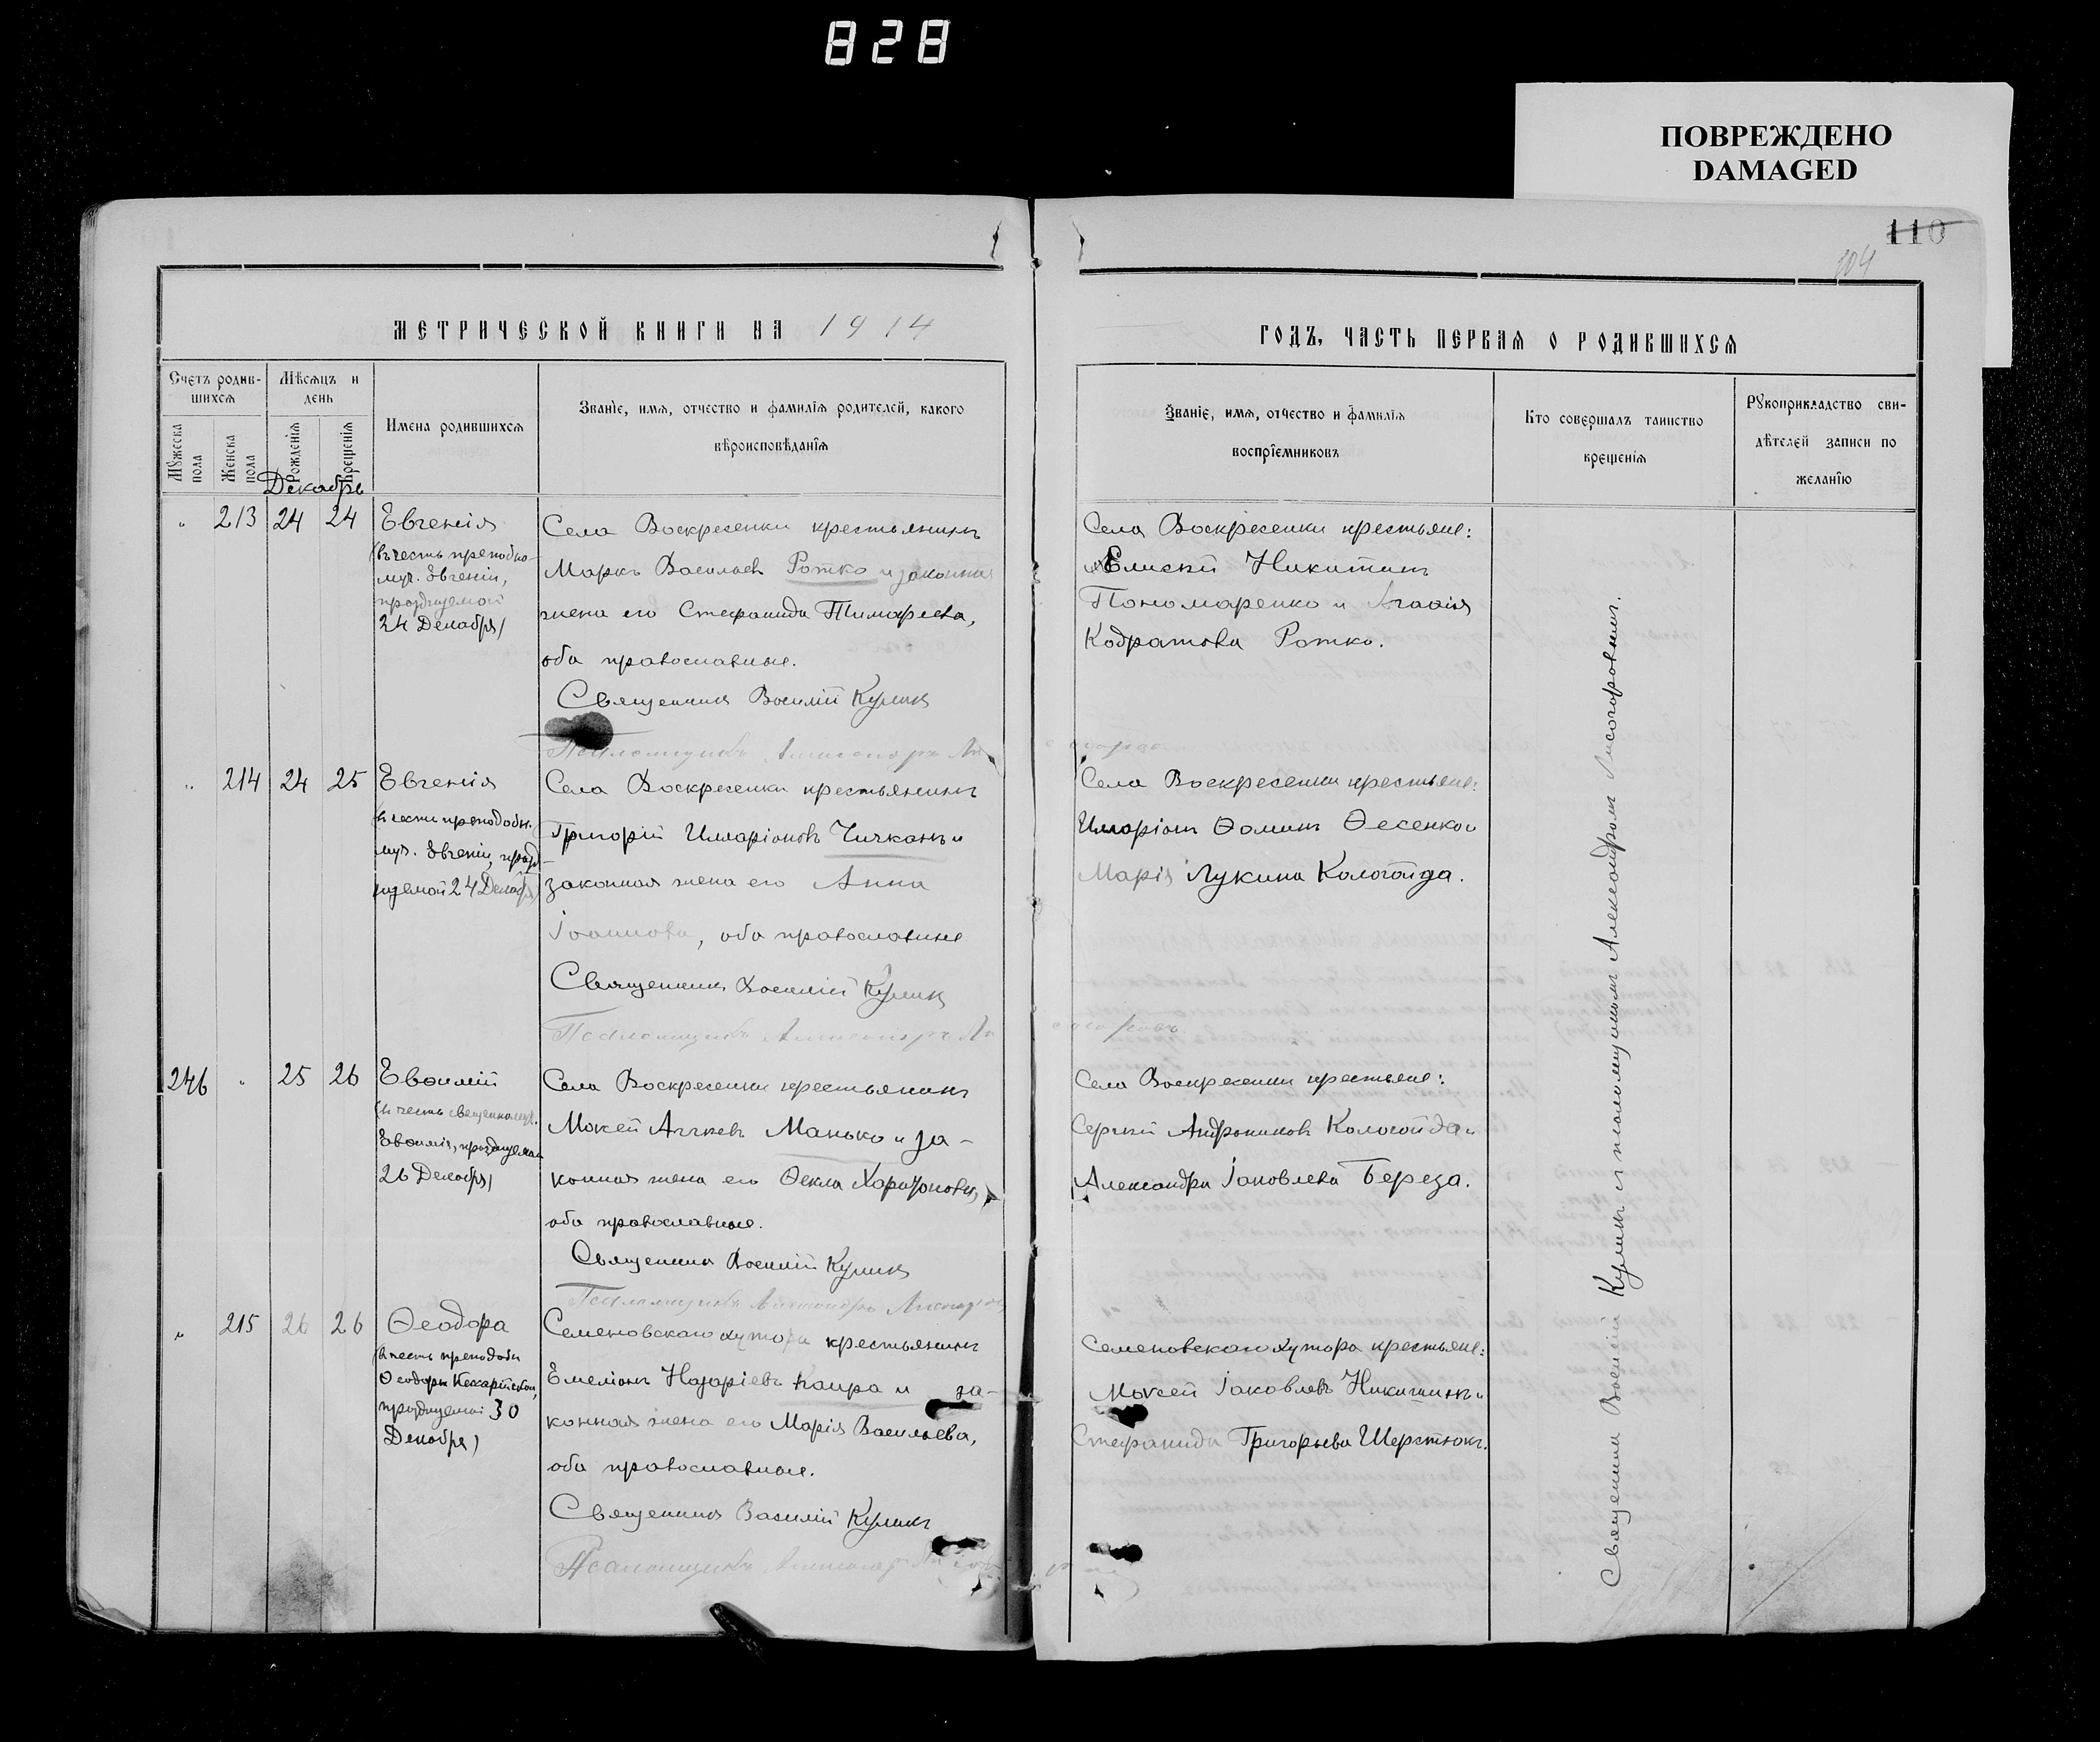 828
ПОВРЕЖДЕНО
DAMAGED
110
104
МЕТРИЧЕСКОЙ КНИГИ НА 1914
ГОДЪ, ЧАСТЬ ПЕРВАЯ О РОДИВШИХСЯ
Счетъ родив-
шихся
Мѣсяцъ и
день
Мужеска
пола
Женска
пола
Рожденія
Крещенія
Имена родившихся
Званіе, имя, отчество и фамилія родителей, какого
вѣроисповѣданія
Званіе, имя, отчество и фамилія
воспріемниковъ
Кто совершалъ таинство
крещенія
Рукоприкладство сви-
дѣтелей записи по
желанію
Декабрь
" 213 24 24
Евгенія
(въ честь преподно-
муч. Евгеніи,
празднуемой
24 Декабря)
Села Воскресенки крестьянинъ
Маркъ Васильевъ Ротко и законная
жена его Стефанида Тимофеева,
оба православные.
Священникъ Василій Куликъ
Псаломщикъ Александръ
Села Воскресенки крестьяне:
Елисей Никитинъ
Пономаренко и Агафія
Кодратова Ротко.
" 214 24 25
Евгенія
(в честь преподобн.
муч. Евгеніи, празд-
нуемой 24 Декабря)
Села Воскресенки крестьянинъ
Григорій Иларіоновъ Чичканъ и
законная жена его Анна
Іоаннова, оба православные
Священникъ Василій Куликъ
Псаломщикъ Александръ
Села Воскресенки крестьяне:
Иларіонъ Ѳоминъ Ѳесенко и
Марія Лукина Кологойда.
246 " 25 26
Евѳимій
(в честь священномуч.
Евѳимія, празднуемаго
26 Декабря)
Села Воскресенки крестьянинъ
Мокей Манько и за-
конная жена его Ѳекла Харитонова,
оба православные.
Священникъ Василій Куликъ
Псаломщикъ Александръ Лисогоровъ
Села Воскресенки крестьяне:
Сергій Андрониковъ Кологойда и
Александра Іаковлева Береза.
" 215 26 26
Ѳеодора
(в честь преподобн
Ѳеодоры Кесарійской,
празднуемой 30
Декабря)
Семеновскаго хутора крестьянинъ
Емеліанъ Назаріевъ Каира и за-
конная жена его Марія Васильева,
оба православные.
Священникъ Василій Куликъ
Псаломщикъ Александръ
Семеновскаго хутора крестьяне:
Мокей Іаковлевъ Никитинъ и
Стефанида Григорьева Шерстюкъ.
Священникъ Василій Куликъ и псаломщикомъ Александромъ Лисогоровымъ.